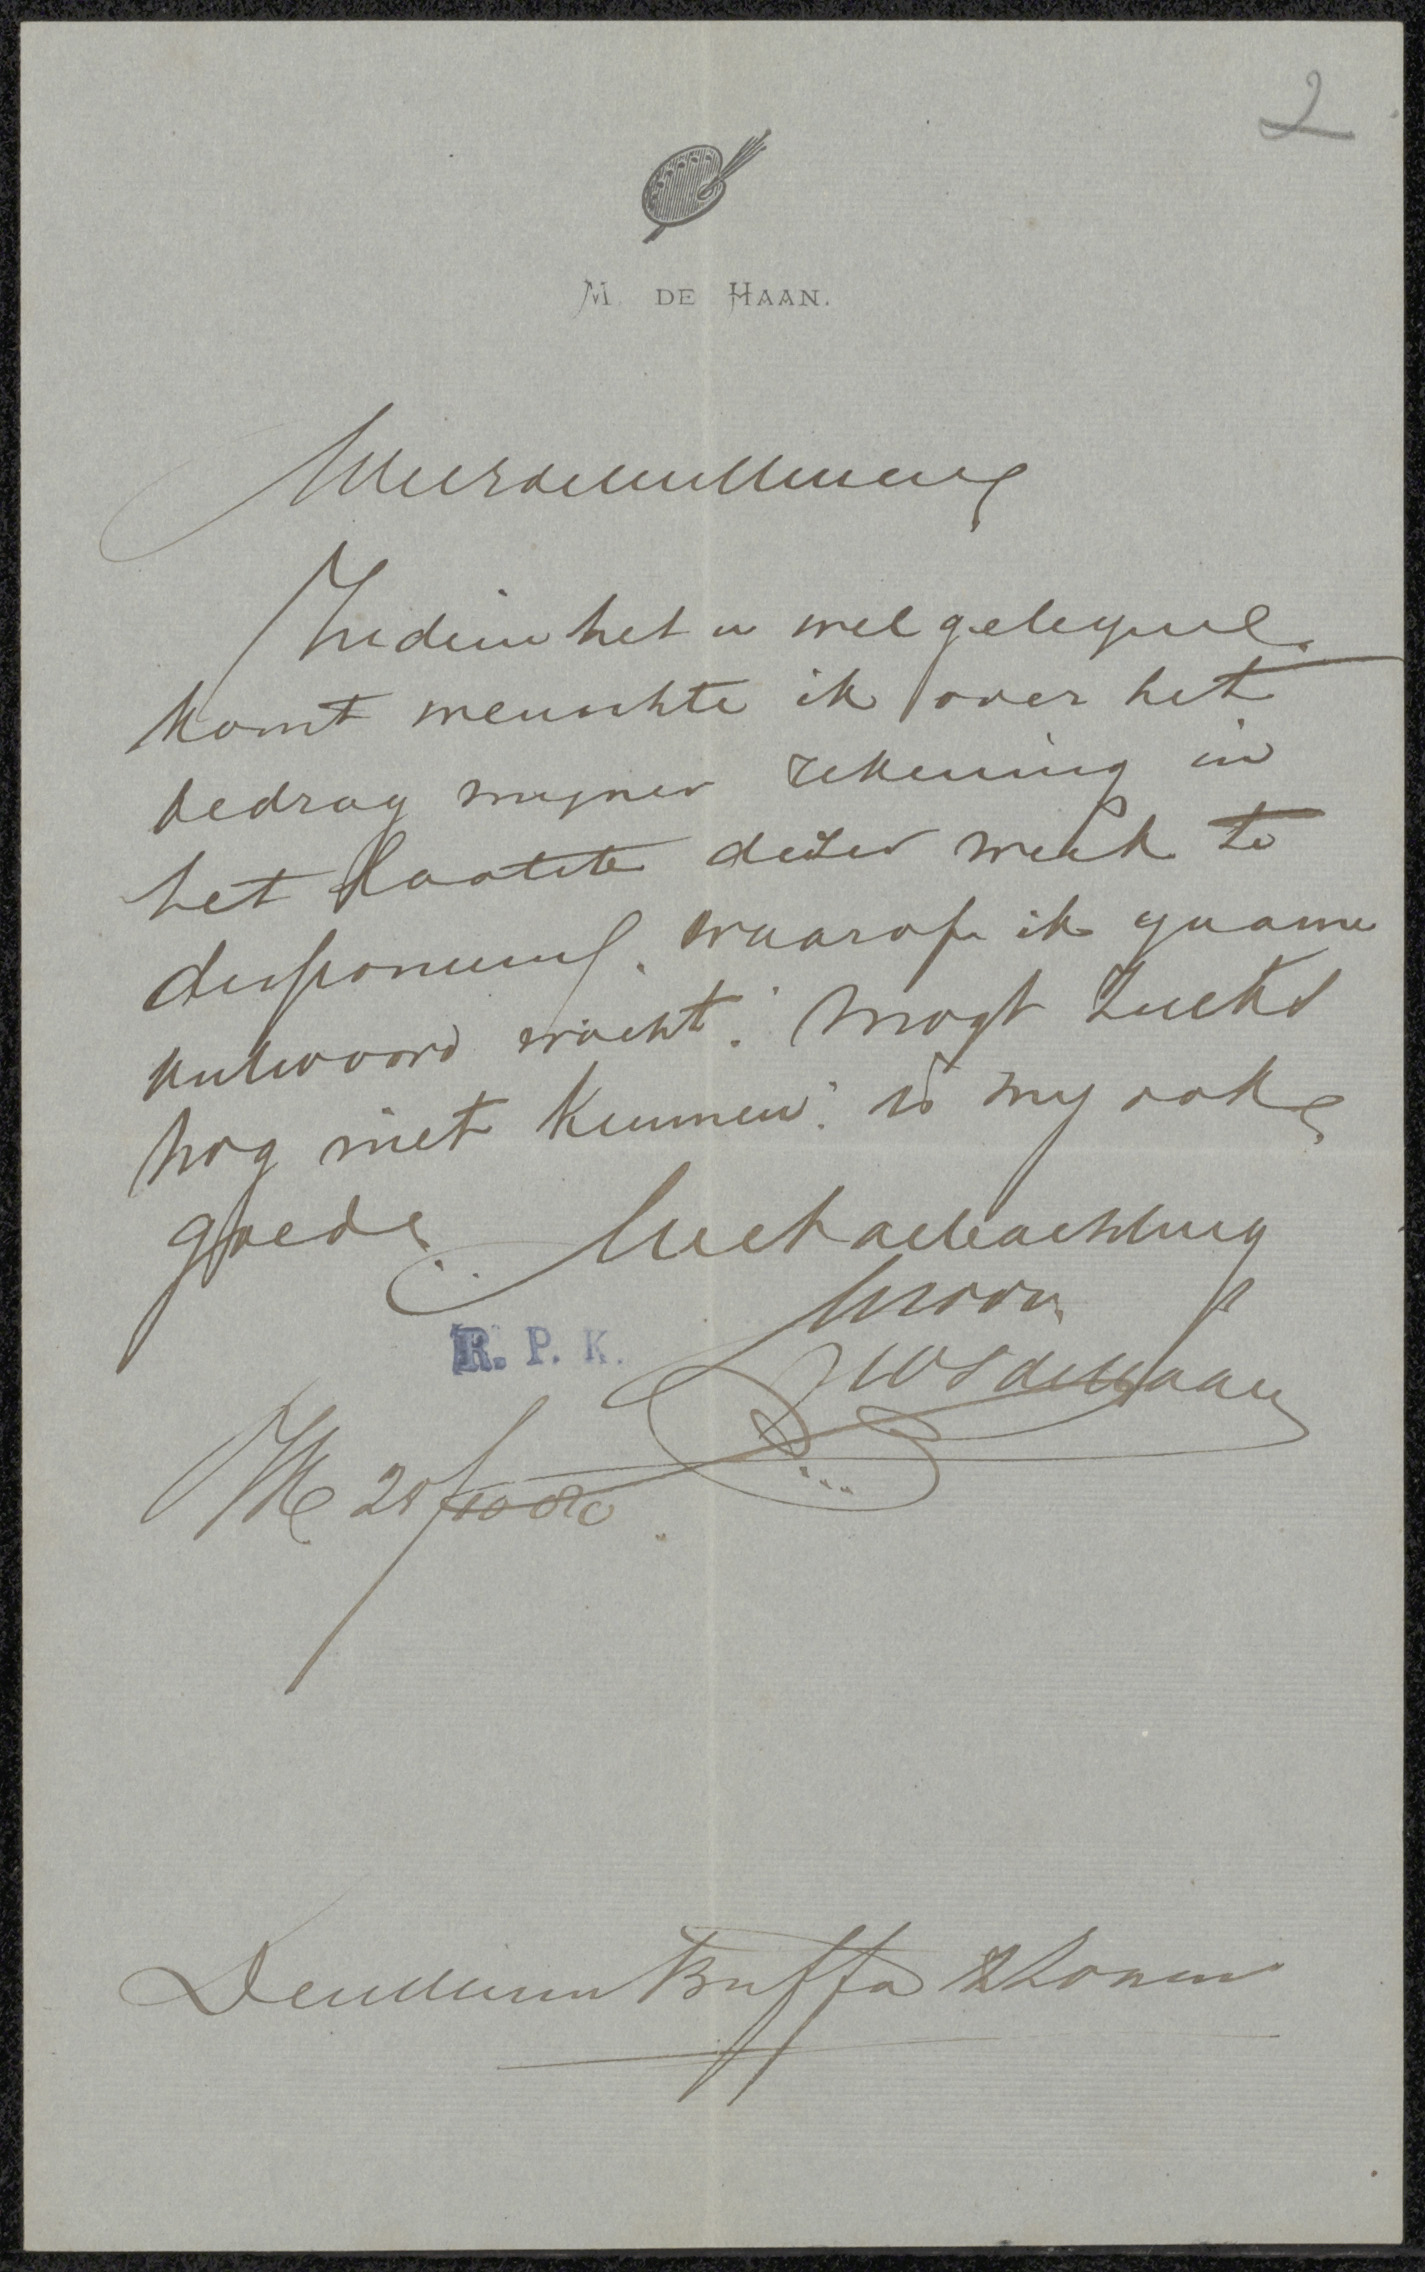 2
M. DE HAAN.
Weledele Heeren
Indien het u wel gelegen
komt wenschte ik over het
bedrag mijner rekening in
het laatste dezer week te
disponeeren. waarop ik gaarne
antwoord wacht. Mogt zulks
nog niet kunnen is my ook
goed. Met achting
de Haan
R. P. K.
Den Heeren Buffa & Zonen